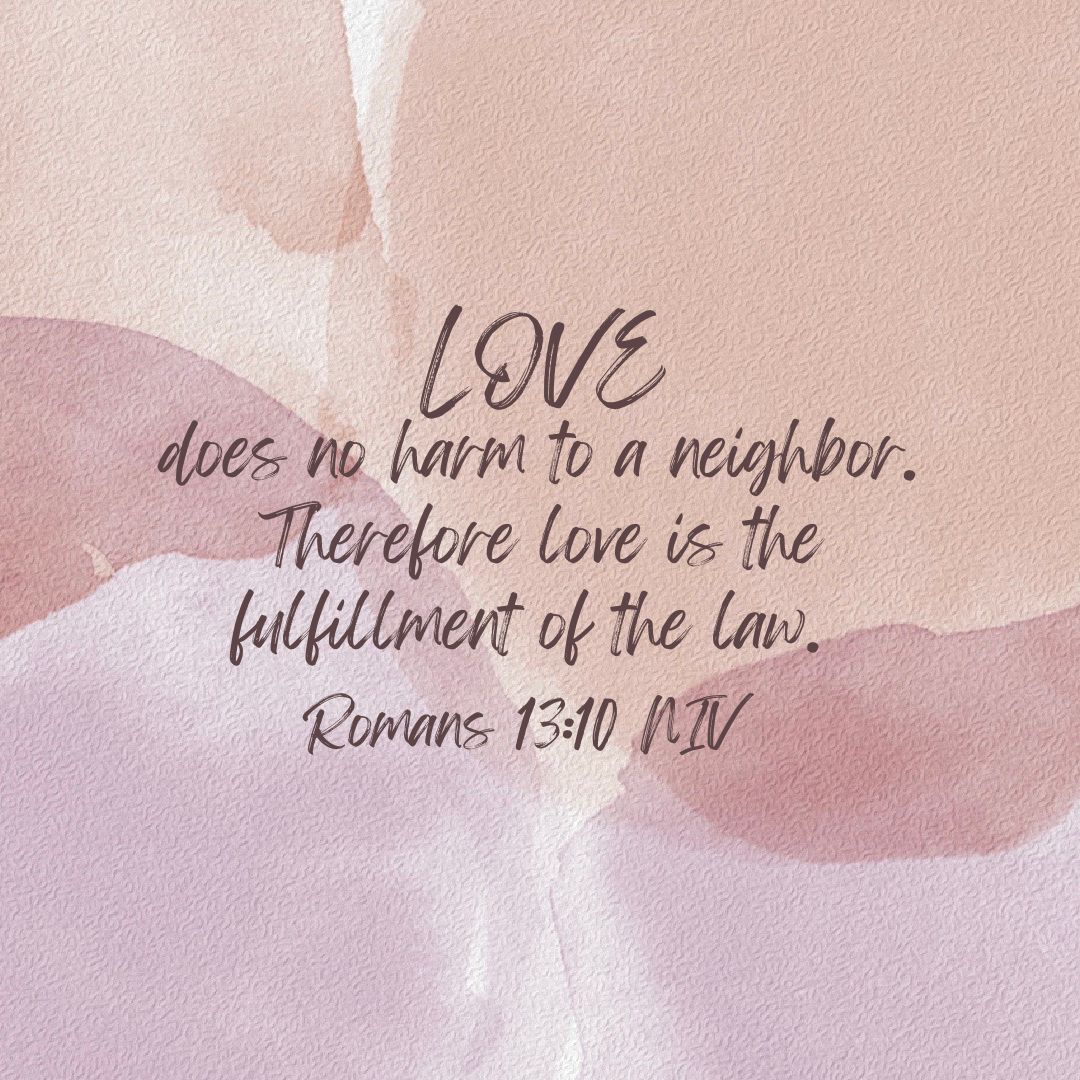 LOVE
does no harm to a neighbor.
Therefore love is the
fulfillment of the law.
Romans 13:10 NIV